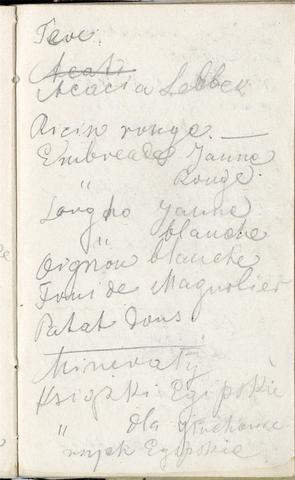 Feve.
Acati
Acacia Lebbek
Ricin rouge. —
Embreades Jaune
" Rouge.
Sorgho Jaune
" blanche
Oignon blanche
de Magnolier
Patat dous
Minerały
Książki Egipskie
" dla
Egipskie